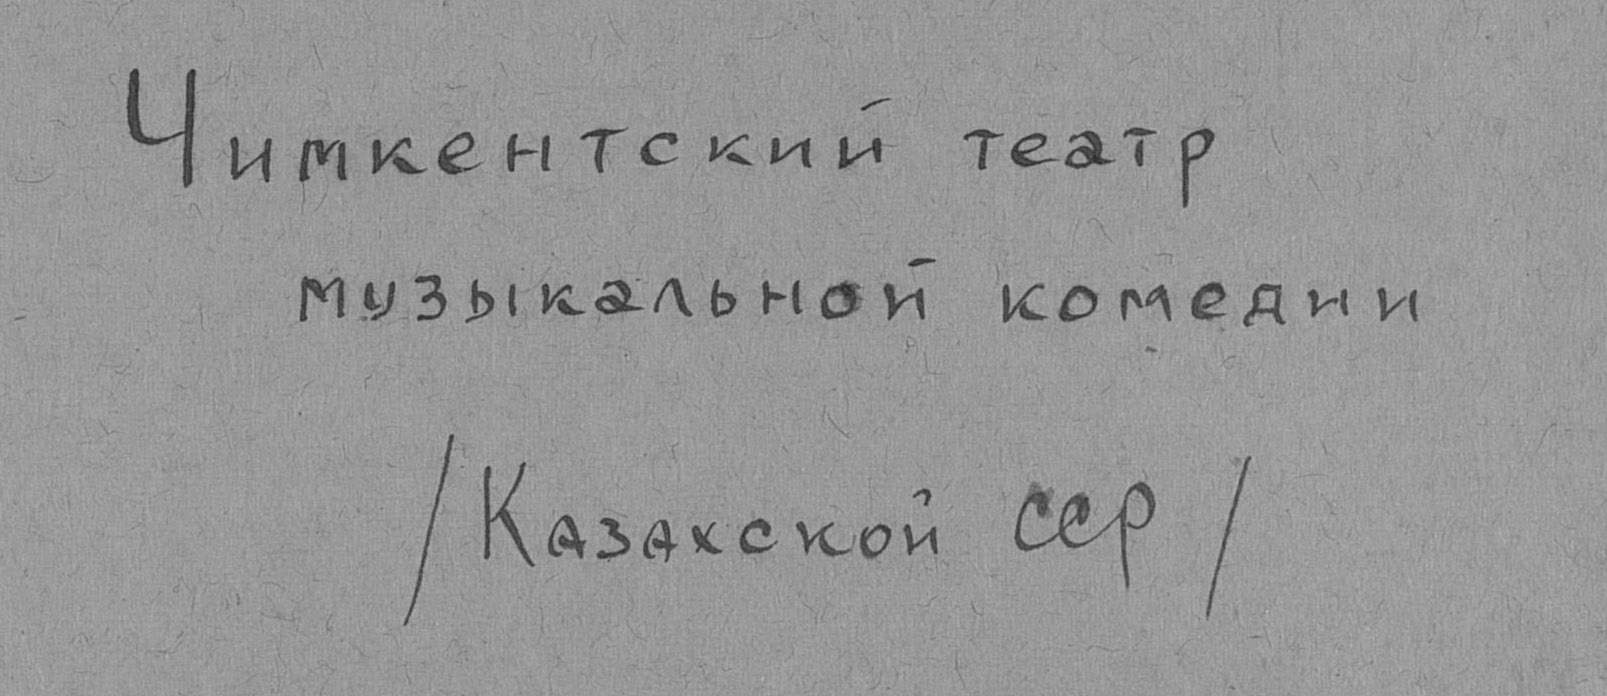 Чимкентский театр
музыкальной комедии
/Казахской ССР/